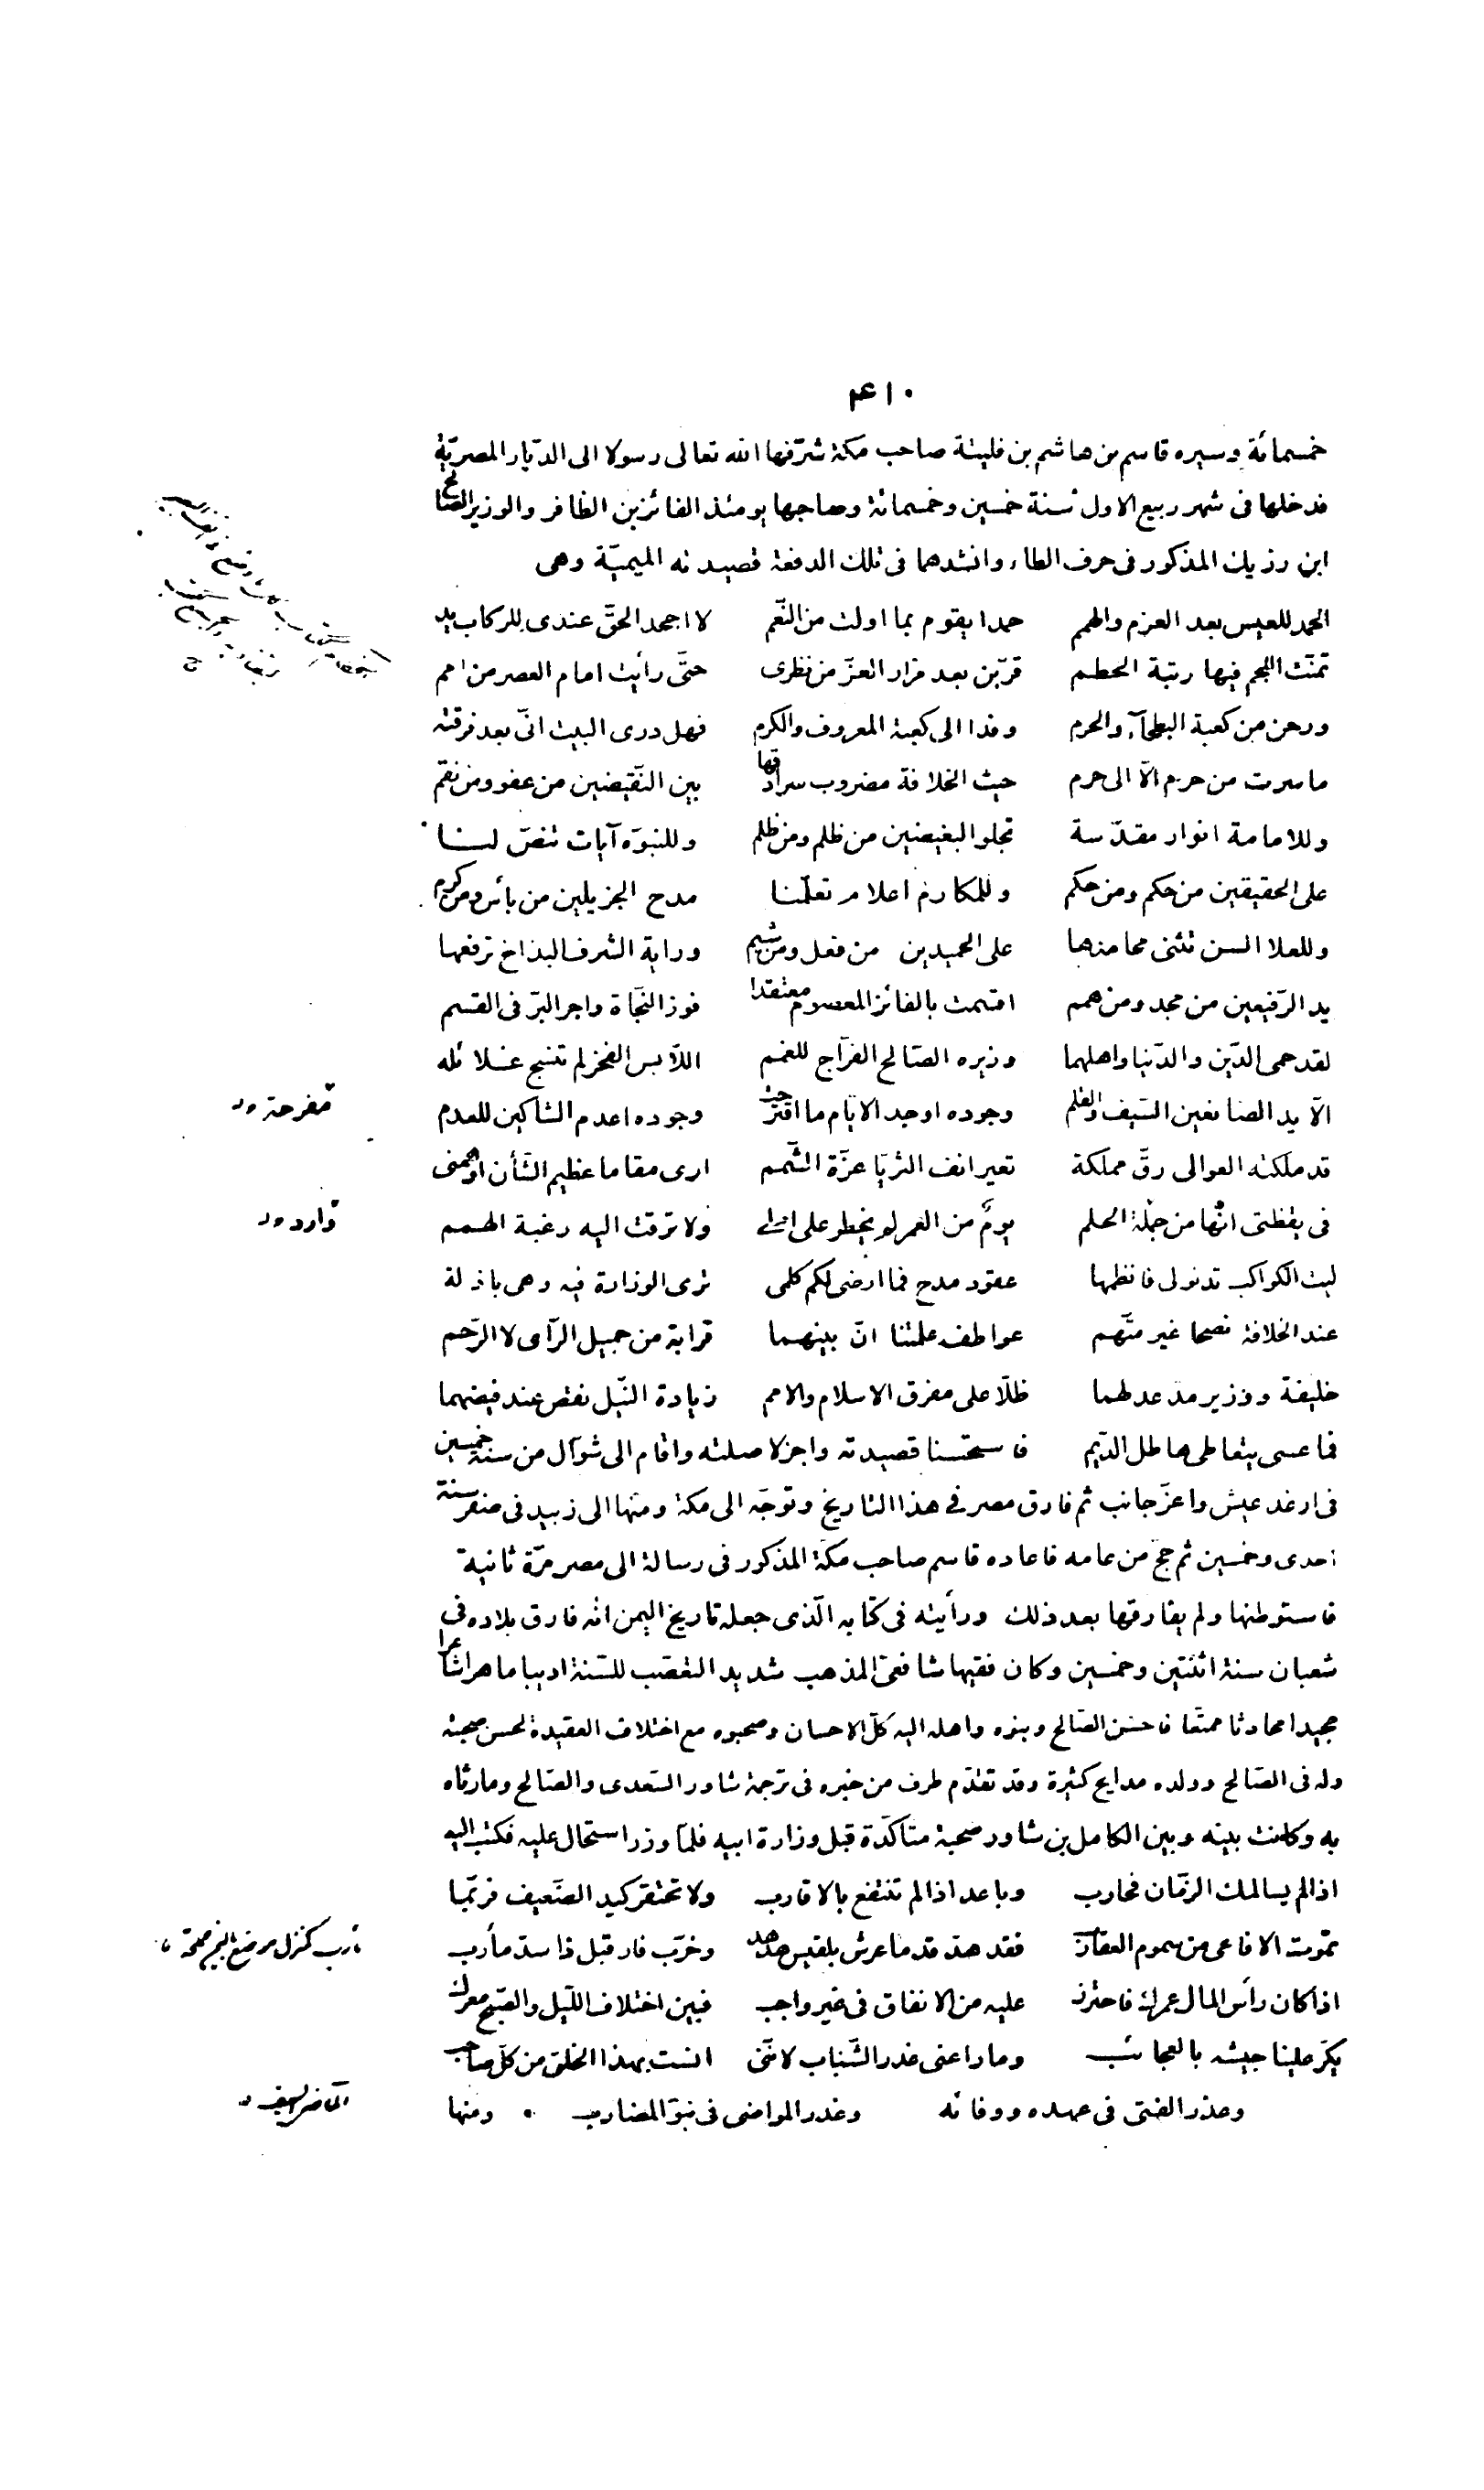 ۴۱۰
خمسمائة وسيره قاسم بن هاشم بن فليتة صاحب مكة شرّفها الله تعالى رسولا الى الدّيار المصريّة
فدخلها فى شهر ربيع الاول سنة خمسين وخمسمائة وصاحبها يومئذ الفائز بن الظافر والوزير الصّالح
ابن رزيك المذكور فى حرف الطاء وانشدهما فى تلك الدفعة قصيدته الميميّة وهى
الحمد للعيس بعد العزم والهمم حمدا يقوم بما اولت من النّعم لا اجحد الحقّ عندى للركاب يد
تمنّت اللجم فيها رتبة الخطم قرّبن بعد مزار العزّ من نظرى حتّى رأيت امام العصر من امم
ورحن من كعبة البطحآء والحرم وفدا الى كعبة المعروف والكرم فهل درى البيت انّى بعد فرقته
ما سرت من حرم الّا الى حرم حيث الخلافة مضروب سرادقها بين النّقيضين من عفو ومن نقم
وللامامة انوار مقدّسة تجلو البغيضين من ظلم ومن ظلم وللنبوّه آيات تنصّ لنا
على الحقيقين من حكم ومن حكم وللمكارم اعلام تعلّمنا مدح الجزيلين من بأس ومن كرم
وللعلا السن تثنى محامدها على الحميدين من فعل ومن شيم وراية الشرف البذاخ ترفعها
يد الرّفيعين من مجد ومن همم اقسمت بالفائز المعصوم معتقدا فوز النّجاة واجر البرّ فى القسم
لقد حمى الدّين والدّنيا واهلهما وزيره الصّالح الفرّاج للغمم اللّابس الفخر لم تنسج غلائله
الّا يد الصانعين السّيف والقلم وجوده اوجد الايّام ما اقترحت وجوده اعدم الشاكين للعدم
مقرحة
قد ملكته العوالى رقّ مملكة تعير انف الثريّا عزّة الشّمم ارى مقاما عظيم الشّأن اوهمنى
فى يقظتى انّها من جملة الحلم يوم من العمر لم يخطر على املى ولا ترقت اليه رغبة الهمم
ليت الكواكب تدنو لى فانظمها عقود مدح فما ارضى لكم كلمى ترى الوزارة فيه وهى باذلة
عند الخلافة نصحا غير متّهم عواطف علمتنا انّ بينهما قرابة من جميل الرّأى لا الرّحم
خليفة ووزير مدّ عدلهما ظلّا على مفرق الاسلام والامم زيادة النّيل نقص عند فيضهما
فما عسى يتعاطى هاطل الدّيم فاستحسنا قصيدته واجزلا صلته واقام الى شوّال من سنة خمسين
فى ارغد عيش واعزّ جانب ثم فارق مصر فى هذا التاريخ وتوجّه الى مكة ومنها الى زبيد فى صفر سنة
احدى وخمسين ثم حجّ من عامه فاعاده قاسم صاحب مكّة المذكور فى رسالة الى مصر مرّة ثانية
فاستوطنها ولم يفارقها بعد ذلك ورأيته فى كتابه الّذى جعله تاريخ اليمن انّه فارق بلاده فى
شعبان سنة اثنتين وخمسين وكان فقيها شافعىّ المذهب شديد التعصّب للسّنة اديبا ماهرا شاعرا
مجيدا محادثا ممتّعا فاحسن الصّالح وبنوه واهله اليه كلّ الاحسان وصحبوه مع اختلاف العقيدة لحسن صحبته
وله فى الصّالح وولده مدايح كثيرة وقد تقدّم طرف من خبره فى ترجمة شاور السّعدى والصّالح وما رثاه
به وكانت بينه وبين الكامل بن شاور صحبة متأكّدة قبل وزارة ابيه فلمّا وزر استحال عليه فكتب اليه
اذا لم يسالمك الزّمان فحارب وباعد اذا لم تنتفع بالاقارب ولا تحتقر كيد الضّعيف فربّما
تموت الافاعى من سموم العقارب فقد هدّ قدما عرش بلقيس هدهد وخرّب فار قبل ذا سدّ مأرب
مأرب كمنزل موضع باليمن
اذا كان رأس المال عمرك فاحترز عليه من الانفاق فى غير واجب فبين اختلاف اللّيل والصّبح معرك
يكرّ علينا جيشه بالعجائب وما راعنى غدر الشّباب لانّنى انست بهذا الخلق من كلّ صاحب
وغدر الفتى فى عهده ووفائه وغدر المواضى فى نبوّ المضارب • ومنها